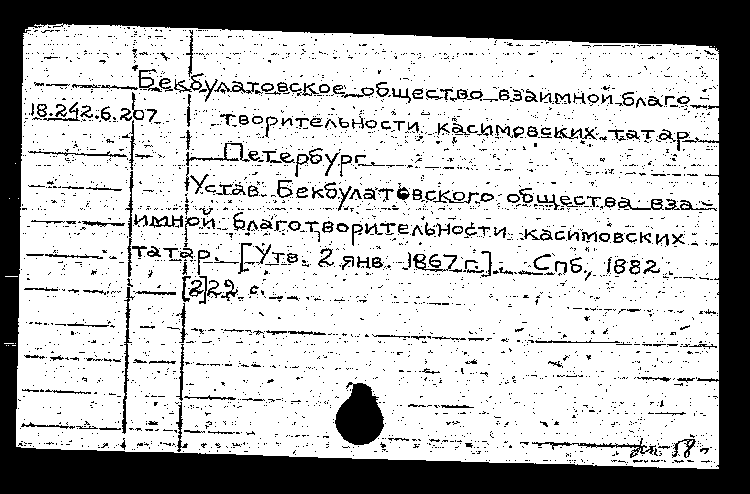 Бекбулатовское общество взаимной благо-
18.242.6.207 творительности касимовских татар.
Петербург.
Устав Бекбулатовского общества вза-
имной благотворительности касимовских
татар. [Утв. 2 янв. 1867 г.]. Спб., 1882.
[2]22 с.